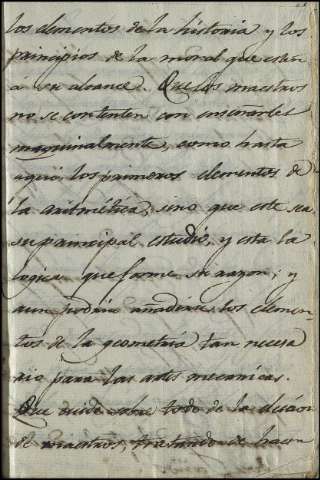 los elementos de la historia y los
principios de la moral que esten
á su alcance. Que los maestros
no se contenten con enseñarles
maquinalmente, como hasta
aqui los primeros elementos de
la aritmética, sino que este sea
su principal estudio, y esta la
logica que forme su razon; y
aun podrin añadirse los elemen-
tos de la geometria tan necesa
rio para las artes mecanicas.
Que cuide sobre todo de la
de maestros, tratando de hacer